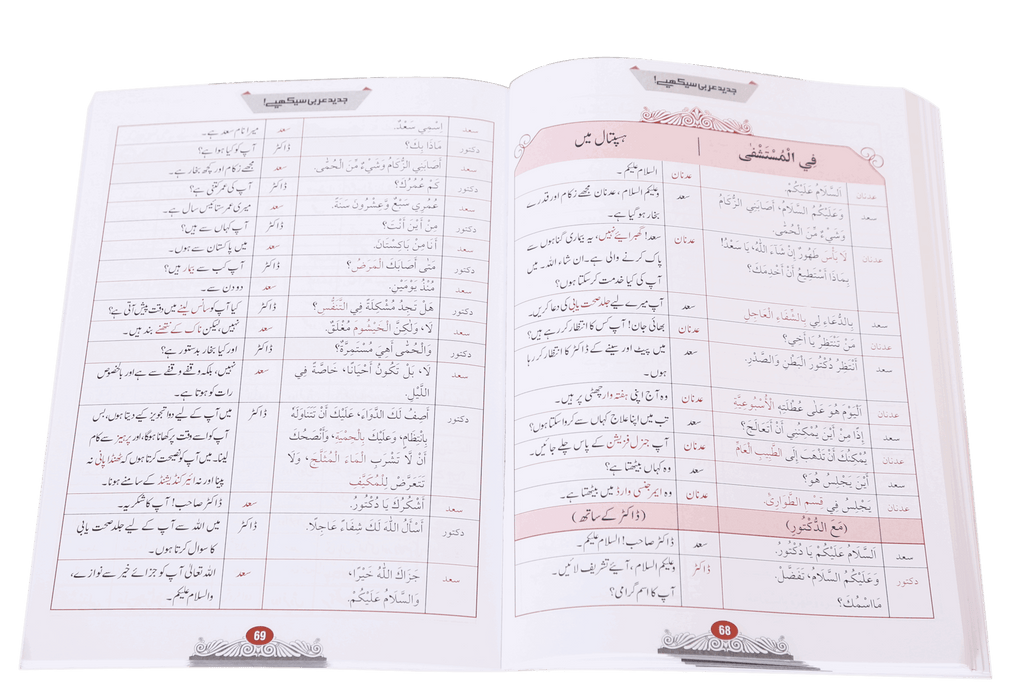 جدید عربی سیکھیے!
فِي الْمُسْتَشْفٰى | ہسپتال میں
عدنان اَلسَّلَامُ عَلَيْكُمْ. عدنان السلام علیکم۔
سعد وَعَلَيْكُمُ السَّلَامُ، أَصَابَنِي الزُّكَامُ سعد وعلیکم السلام، عدنان مجھے زکام اور قدرے
وَشَيْءٌ مِّنَ الْحُمّٰى. بخار ہو گیا ہے۔
عدنان لَا بَأْسَ طَهُورٌ إِنْ شَاءَ اللّٰهُ، يَا سَعْدُ! عدنان سعد! گھبرائیے نہیں، یہ بیماری گناہوں سے
بِمَاذَا أَسْتَطِيعُ أَنْ أَخْدِمَكَ؟ پاک کرنے والی ہے۔ ان شاء اللہ۔ میں
آپ کی کیا خدمت کر سکتا ہوں؟
سعد بِالدُّعَاءِ لِي بِالشِّفَاءِ الْعَاجِلِ سعد آپ میرے لیے جلد صحت یابی کی دعا کریں۔
عدنان مَنْ تَنْتَظِرُ يَا أَخِي؟ عدنان بھائی جان! آپ کس کا انتظار کر رہے ہیں؟
سعد أَنْتَظِرُ دُكْتُورَ الْبَطْنِ وَالصَّدْرِ. سعد میں پیٹ اور سینے کے ڈاکٹر کا انتظار کر رہا
ہوں۔
عدنان اَلْيَوْمَ هُوَ عَلَى عُطْلَتِهِ الْأُسْبُوعِيَّةِ عدنان وہ آج اپنی ہفتہ وار چھٹی پر ہیں۔
سعد إِذًا مِنْ أَيْنَ يُمْكِنُنِي أَنْ أَتَعَالَجَ؟ سعد تب میں اپنا علاج کہاں سے کروا سکتا ہوں؟
عدنان يُمْكِنُكَ أَنْ تَذْهَبَ إِلَى الطَّبِيبِ الْعَامِّ عدنان آپ جنرل فزیشن کے پاس چلے جائیں۔
سعد أَيْنَ يَجْلِسُ هُوَ؟ سعد وہ کہاں بیٹھتا ہے؟
عدنان يَجْلِسُ فِي قِسْمِ الطَّوَارِئِ. عدنان وہ ایمرجنسی وارڈ میں بیٹھتا ہے۔
(مَعَ الدُّكْتُورِ) (ڈاکٹر کے ساتھ)
سعد اَلسَّلَامُ عَلَيْكُمْ يَا دُكْتُورُ. سعد ڈاکٹر صاحب! السلام علیکم۔
دكتور وَعَلَيْكُمُ السَّلَامُ، تَفَضَّلْ. ڈاکٹر وعلیکم السلام، آیئے تشریف لائیں۔
مَا اسْمُكَ؟ آپ کا اسم گرامی؟
68
جدید عربی سیکھیے!
سعد اِسْمِي سَعْدٌ. سعد میرا نام سعد ہے۔
دكتور مَاذَا بِكَ؟ ڈاکٹر آپ کو کیا ہوا ہے؟
سعد أَصَابَنِي الزُّكَامُ وَشَيْءٌ مِّنَ الْحُمّٰى. سعد مجھے زکام اور کچھ بخار ہے۔
دكتور كَمْ عُمُرُكَ؟ ڈاکٹر آپ کی عمر کتنی ہے؟
سعد عُمُرِي سَبْعٌ وَعِشْرُونَ سَنَةً. سعد میری عمر ستائیس سال ہے۔
دكتور مِنْ أَيْنَ أَنْتَ؟ ڈاکٹر آپ کہاں سے ہیں؟
سعد أَنَا مِنْ بَاكِسْتَانَ. سعد میں پاکستان سے ہوں۔
دكتور مَتٰى أَصَابَكَ الْمَرَضُ؟ ڈاکٹر آپ کب سے بیمار ہیں؟
سعد مُنْذُ يَوْمَيْنِ. سعد دو دن سے۔
دكتور هَلْ تَجِدُ مُشْكِلَةً فِي التَّنَفُّسِ؟ ڈاکٹر کیا آپ کو سانس لینے میں دقت پیش آتی ہے؟
سعد لَا، وَلٰكِنَّ الْخَيْشُومَ مُغْلَقٌ. سعد نہیں، لیکن ناک کے نتھنے بند ہیں۔
دكتور وَالْحُمّٰى أَهِيَ مُسْتَمِرَّةٌ؟ ڈاکٹر اور کیا بخار بدستور ہے؟
سعد لَا، بَلْ تَكُونُ أَحْيَانًا، خَاصَّةً فِي سعد نہیں، بلکہ وقفے وقفے سے ہے اور بالخصوص
اللَّيْلِ. رات کو ہوتا ہے۔
دكتور أَصِفُ لَكَ الدَّوَاءَ، عَلَيْكَ أَنْ تَتَنَاوَلَهُ ڈاکٹر میں آپ کے لیے دوا تجویز کیے دیتا ہوں، بس
بِانْتِظَامٍ، وَعَلَيْكَ بِالْحِمْيَةِ، وَأَنْصَحُكَ آپ کو اسے وقت پر کھانا ہوگا، اور پرہیز سے کام
أَنْ لَّا تَشْرَبَ الْمَاءَ الْمُثَلَّجَ، وَلَا لینا۔ میں آپ کو نصیحت کرتا ہوں کہ ٹھنڈا پانی نہ
تَتَعَرَّضْ لِلْمُكَيِّفِ پینا اور نہ ائیر کنڈیشنڈ کے سامنے ہونا۔
سعد أَشْكُرُكَ يَا دُكْتُورُ. سعد ڈاکٹر صاحب! آپ کا شکریہ۔
دكتور أَسْأَلُ اللّٰهَ لَكَ شِفَاءً عَاجِلًا. ڈاکٹر میں اللہ سے آپ کے لیے جلد صحت یابی
کا سوال کرتا ہوں۔
سعد جَزَاكَ اللّٰهُ خَيْرًا، سعد اللہ تعالیٰ آپ کو جزائے خیر سے نوازے،
وَالسَّلَامُ عَلَيْكُمْ. والسلام علیکم۔
69